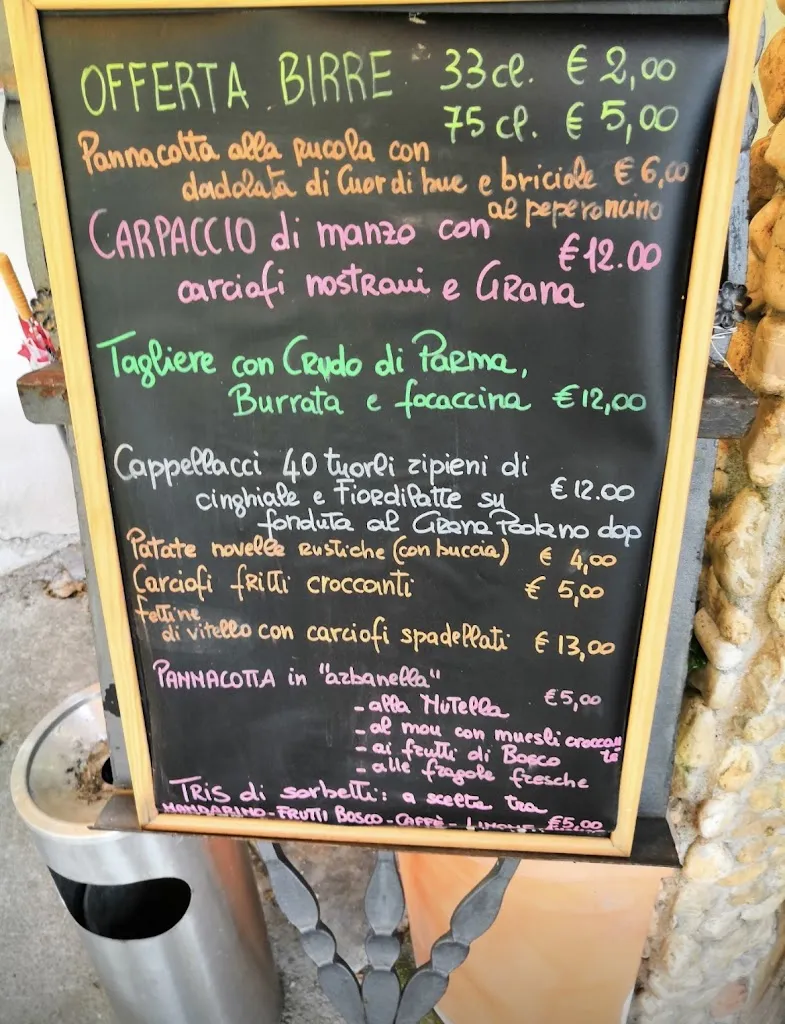 OFFERTA BIRRE 33cl. € 2,00
75 cl. € 5,00
Pannacotta alla rucola con
dadolata di Cuor di bue e briciole € 6,00
al peperoncino
CARPACCIO di manzo con
€12.00
carciofi nostrani e GRana
Tagliere con CRudo di PaRma,
Burrata e focaccina €12,00
Cappellacci 40 tuorli ripieni di
€12.00
cinghiale e FiordiLatte su
fonduta al GRana Padano dop
Patate novelle Rustiche (con buccia) € 4,00
Carciofi fritti croccanti € 5,00
Fettine
di vitello con carciofi spadellati € 13,00
PANNACOTTA in "arbanella"
€5,00
- alla NuTella
- al mou con muesli croccan
te
- ai frutti di Bosco
- alle fragole fresche
TRis di sorbetti: a scelta tra
MANDARINO - FRUTTI BOSCO - CAFFÈ - LIMONE €5,00